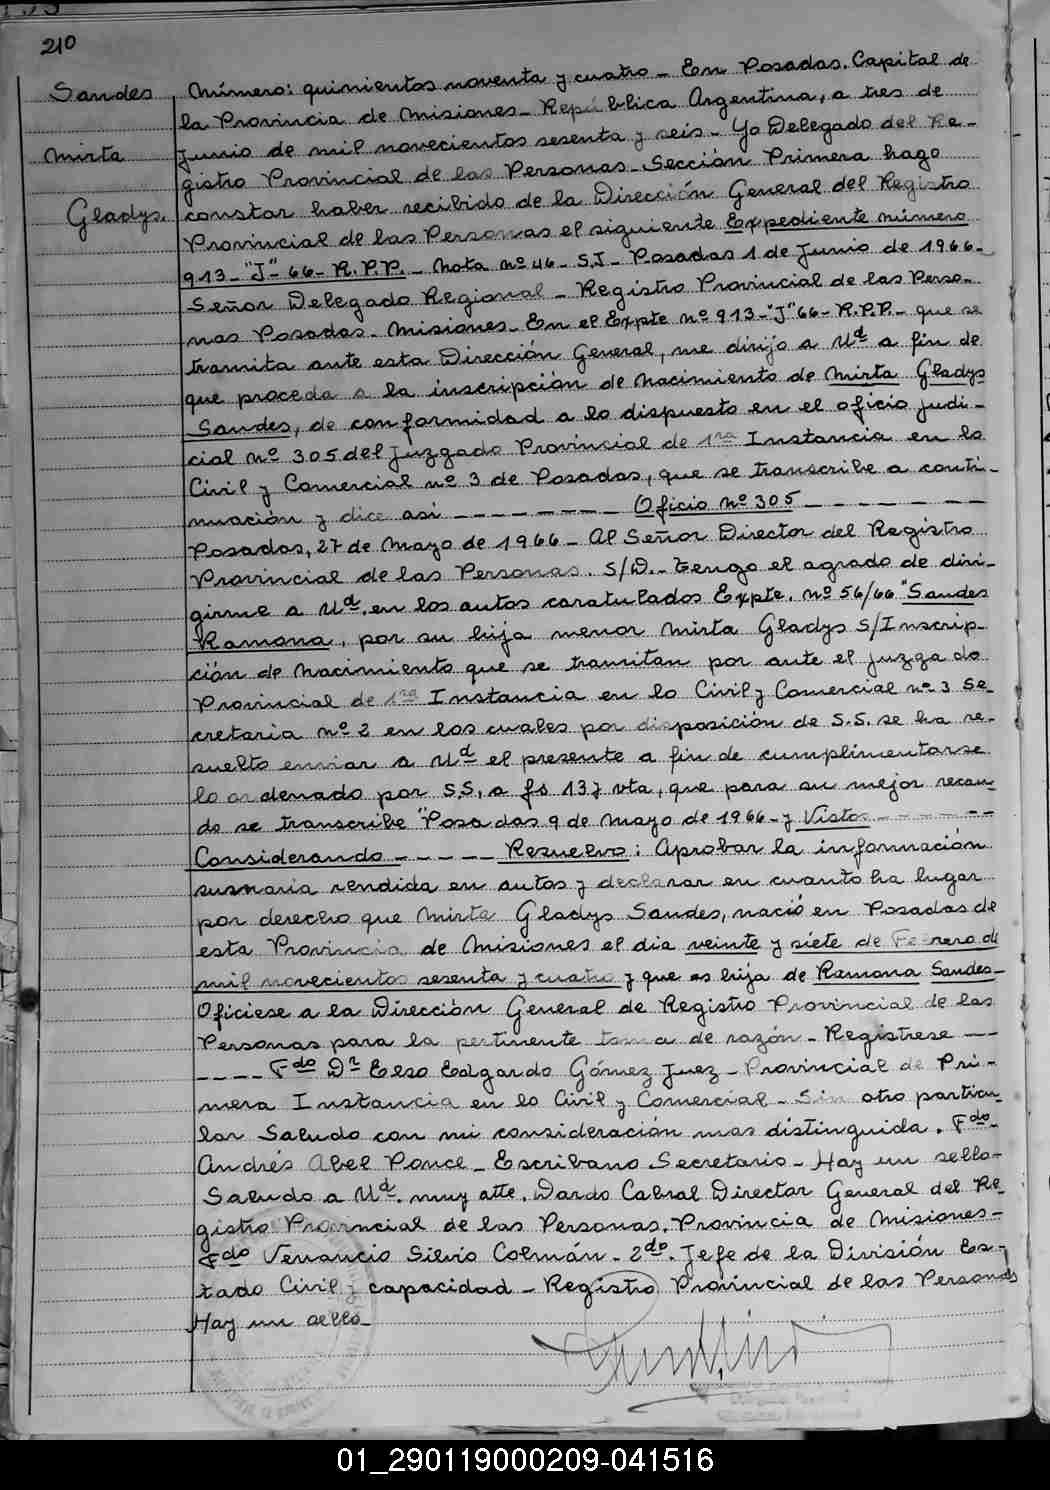 210
Sandes
Mirta
Gladys.
Número: quinientos noventa y cuatro - En Posadas. Capital de
la Provincia de Misiones - República Argentina, a tres de
Junio de mil novecientos sesenta y seis - Yo Delegado del Re-
gistro Provincial de las Personas - Sección Primera hago
constar haber recibido de la Dirección General del Registro
Provincial de las Personas el siguiente Expediente número
913 - "J" - 66 - R.P.P. - Nota nº 46 - S.J - Posadas 1 de Junio de 1966 -
Señor Delegado Regional - Registro Provincial de las Perso-
nas Posadas - Misiones - En el Expte nº 913 - "J" 66 - R.P.P. - que se
tramita ante esta Dirección General, me dirijo a Ud a fin de
que proceda a la inscripción de nacimiento de Mirta Gladys
Sandes, de conformidad a lo dispuesto en el oficio judi-
cial nº 305 del Juzgado Provincial de 1ra Instancia en lo
Civil y Comercial nº 3 de Posadas, que se transcribe a conti-
nuación y dice así - - - - - - - - Oficio nº 305 - - - - - - - -
Posadas, 27 de Mayo de 1966 - Al Señor Director del Registro
Provincial de las Personas. S/D. - Tengo el agrado de diri-
girme a Ud. en los autos caratulados Expte. nº 56/66 "Sandes
Ramona, por su hija menor Mirta Gladys S/Inscrip-
ción de nacimiento que se tramitan por ante el Juzgado
Provincial de 1ra Instancia en lo Civil y Comercial nº 3 Se-
cretaria nº 2 en los cuales por disposición de S.S. se ha re-
suelto enviar a Ud el presente a fin de cumplimentarse
lo ordenado por S.S, a fs 13 y vta, que para su mejor recau-
do se transcribe "Posadas 9 de Mayo de 1966 - y Vistos - - - - - -
Considerando - - - - - Resuelvo: Aprobar la información
sumaria rendida en autos y declarar en cuanto ha lugar
por derecho que Mirta Gladys Sandes, nació en Posadas de
esta Provincia de Misiones el dia veinte y siete de Febrero de
mil novecientos sesenta y cuatro y que es hija de Ramona Sandes -
Oficiese a la Dirección General de Registro Provincial de las
Personas para la pertinente toma de razón - Registrese - -
- - - - Fdo Dr Elso Edgardo Gómez Juez - Provincial de Pri-
mera Instancia en lo Civil y Comercial - Sin otro particu-
lar Saludo con mi consideración mas distinguida. Fdo -
Andrés Abel Ponce - Escribano Secretario - Hay un sello -
Saludo a Ud. muy atte. Dardo Cabral Director General del Re-
gistro Provincial de las Personas. Provincia de Misiones -
Fdo Venancio Silvio Colmán - 2do. Jefe de la División Es-
tado Civil y capacidad - Registro Provincial de las Personas
Hay un sello -
01_290119000209-041516